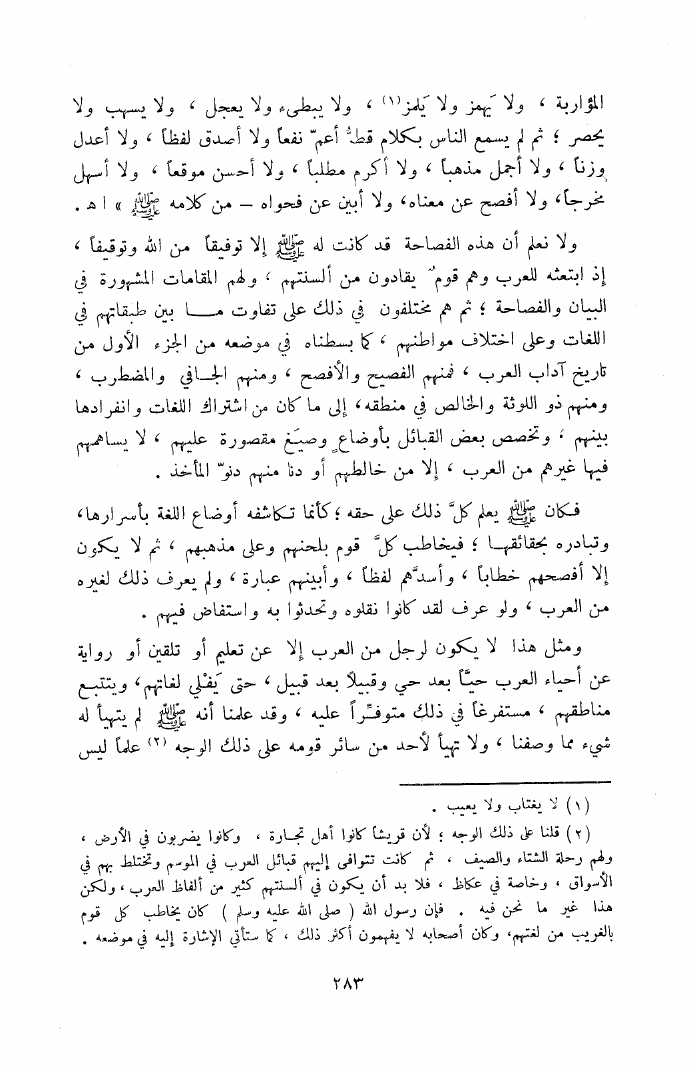 المؤاربة ، ولا يَهمز ولا يَلمز(١) ، ولا يبطىء ولا يعجل ، ولا يسهب ولا
يحصر ؛ ثم لم يسمع الناس بكلام قطُّ أعمّ نفعاً ولا أصدق لفظاً ، ولا أعدل
وزناً ، ولا أجمل مذهباً ، ولا أكرم مطلباً ، ولا أحسن موقعاً ، ولا أسهل
مخرجاً، ولا أفصح عن معناه، ولا أبين عن فحواه – من كلامه ﷺ » ا هـ .
ولا نعلم أن هذه الفصاحة قد كانت له ﷺ إلا توفيقاً من الله وتوقيفاً ،
إذ ابتعثه للعرب وهم قومٌ يقادون من ألسنتهم ، ولهم المقامات المشهورة في
البيان والفصاحة ؛ ثم هم مختلفون في ذلك على تفاوت مـا بين طبقاتهم في
اللغات وعلى اختلاف مواطنهم ، كما بسطناه في موضعه من الجزء الأول من
تاريخ آداب العرب ، فمنهم الفصيح والأفصح ، ومنهم الجـافي والمضطرب ،
ومنهم ذو اللوثة والخالص في منطقه، إلى ما كان من اشتراك اللغات وانفرادها
بينهم ، وتخصص بعض القبائل بأوضاعٍ وصيَغ مقصورة عليهم ، لا يساهمهم
فيها غيرهم من العرب ، إلا من خالطهم أو دنا منهم دنوّ المأخذ .
فكان ﷺ يعلم كلَّ ذلك على حقه ؛ كأنما تكاشفه أوضاع اللغة بأسرارها،
وتبادره بحقائقهـا ؛ فيخاطب كلَّ قوم بلحنهم وعلى مذهبهم ، ثم لا يكون
إلا أفصحهم خطاباً ، وأسدَّهم لفظاً ، وأبينهم عبارة ، ولم يعرف ذلك لغيره
من العرب ، ولو عرف لقد كانوا نقلوه وتحدثوا به واستفاض فيهم .
ومثل هذا لا يكون لرجل من العرب إلا عن تعليم أو تلقين أو رواية
عن أحياء العرب حيًّا بعد حي وقبيلاً بعد قبيل ، حتى يَفْلي لغاتهم، ويتتبع
مناطقهم ، مستفرغاً في ذلك متوفِّراً عليه ، وقد علمنا أنه ﷺ لم يتهيأ له
شيء مما وصفنا ، ولا تهيأ لأحد من سائر قومه على ذلك الوجه (٢) علماً ليس
(١) لا يغتاب ولا يعيب .
(٢) قلنا على ذلك الوجه ؛ لأن قريشاً كانوا أهل تجـارة ، وكانوا يضربون في الأرض ،
ولهم رحلة الشتاء والصيف ، ثم كانت تتوافى إليهم قبائل العرب في الموسم وتختلط بهم في
الأسواق ، وخاصة في عكاظ ، فلا بد أن يكون في ألسنتهم كثير من ألفاظ العرب ، ولكن
هذا غير ما نحن فيه . فإن رسول الله ( صلى الله عليه وسلم ) كان يخاطب كل قوم
بالغريب من لغتهم، وكان أصحابه لا يفهمون أكثر ذلك ، كما ستأتي الإشارة إليه في موضعه .
٢٨٣